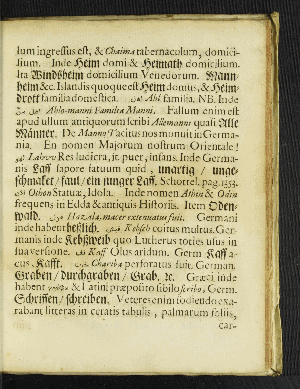 lum ingressus est, & Chaima tabernaculum, domici-
lium. Inde Heim domi & Heimath domicilium.
Ita Windßheim domicilium Venedorum. Mann-
heim &c. Islandis quoque est Heim domus, & Heim-
drott familia domestica. Ahl familia. NB. Inde
Ahlo-manni Familia Manni. Falsum enim est
apud ullum antiquorum scribi Allemanni quasi Alle
Männer. De Manno Tacitus nos monuit in Germa-
nia. En nomen Majorum nostrum Orientale!
Labovv Res ludicra, it. puer, infans. Inde Germa-
nis Laff sapore fatuum quid, unartig / unge-
schmaket / faul / ein junger Laff, Schottel. pag. 1353.
Othon Statuæ, Idola. Inde nomen Athin & Odin
frequens in Edda & antiquis Historiis. Item Oden-
wald. HazAla, macer extenuatus fuit. Germani
inde habent heßlich. Kebsch coitus multus. Ger-
manis inde Kebßweib quo Lutherus toties usus in
sua versione. Kaff Olus aridum. Germ. Kaff a-
cus. Kafft. Charaba perforatus fuit. German.
Graben / Durchgraben / Grab, &c. Græci inde
habent & Latini præposito sibilo scribo, Germ.
Schriffen / schreiben. Veteres enim fodiendo exa-
rabant litteras in ceratis tabulis, palmarum foliis,
car-